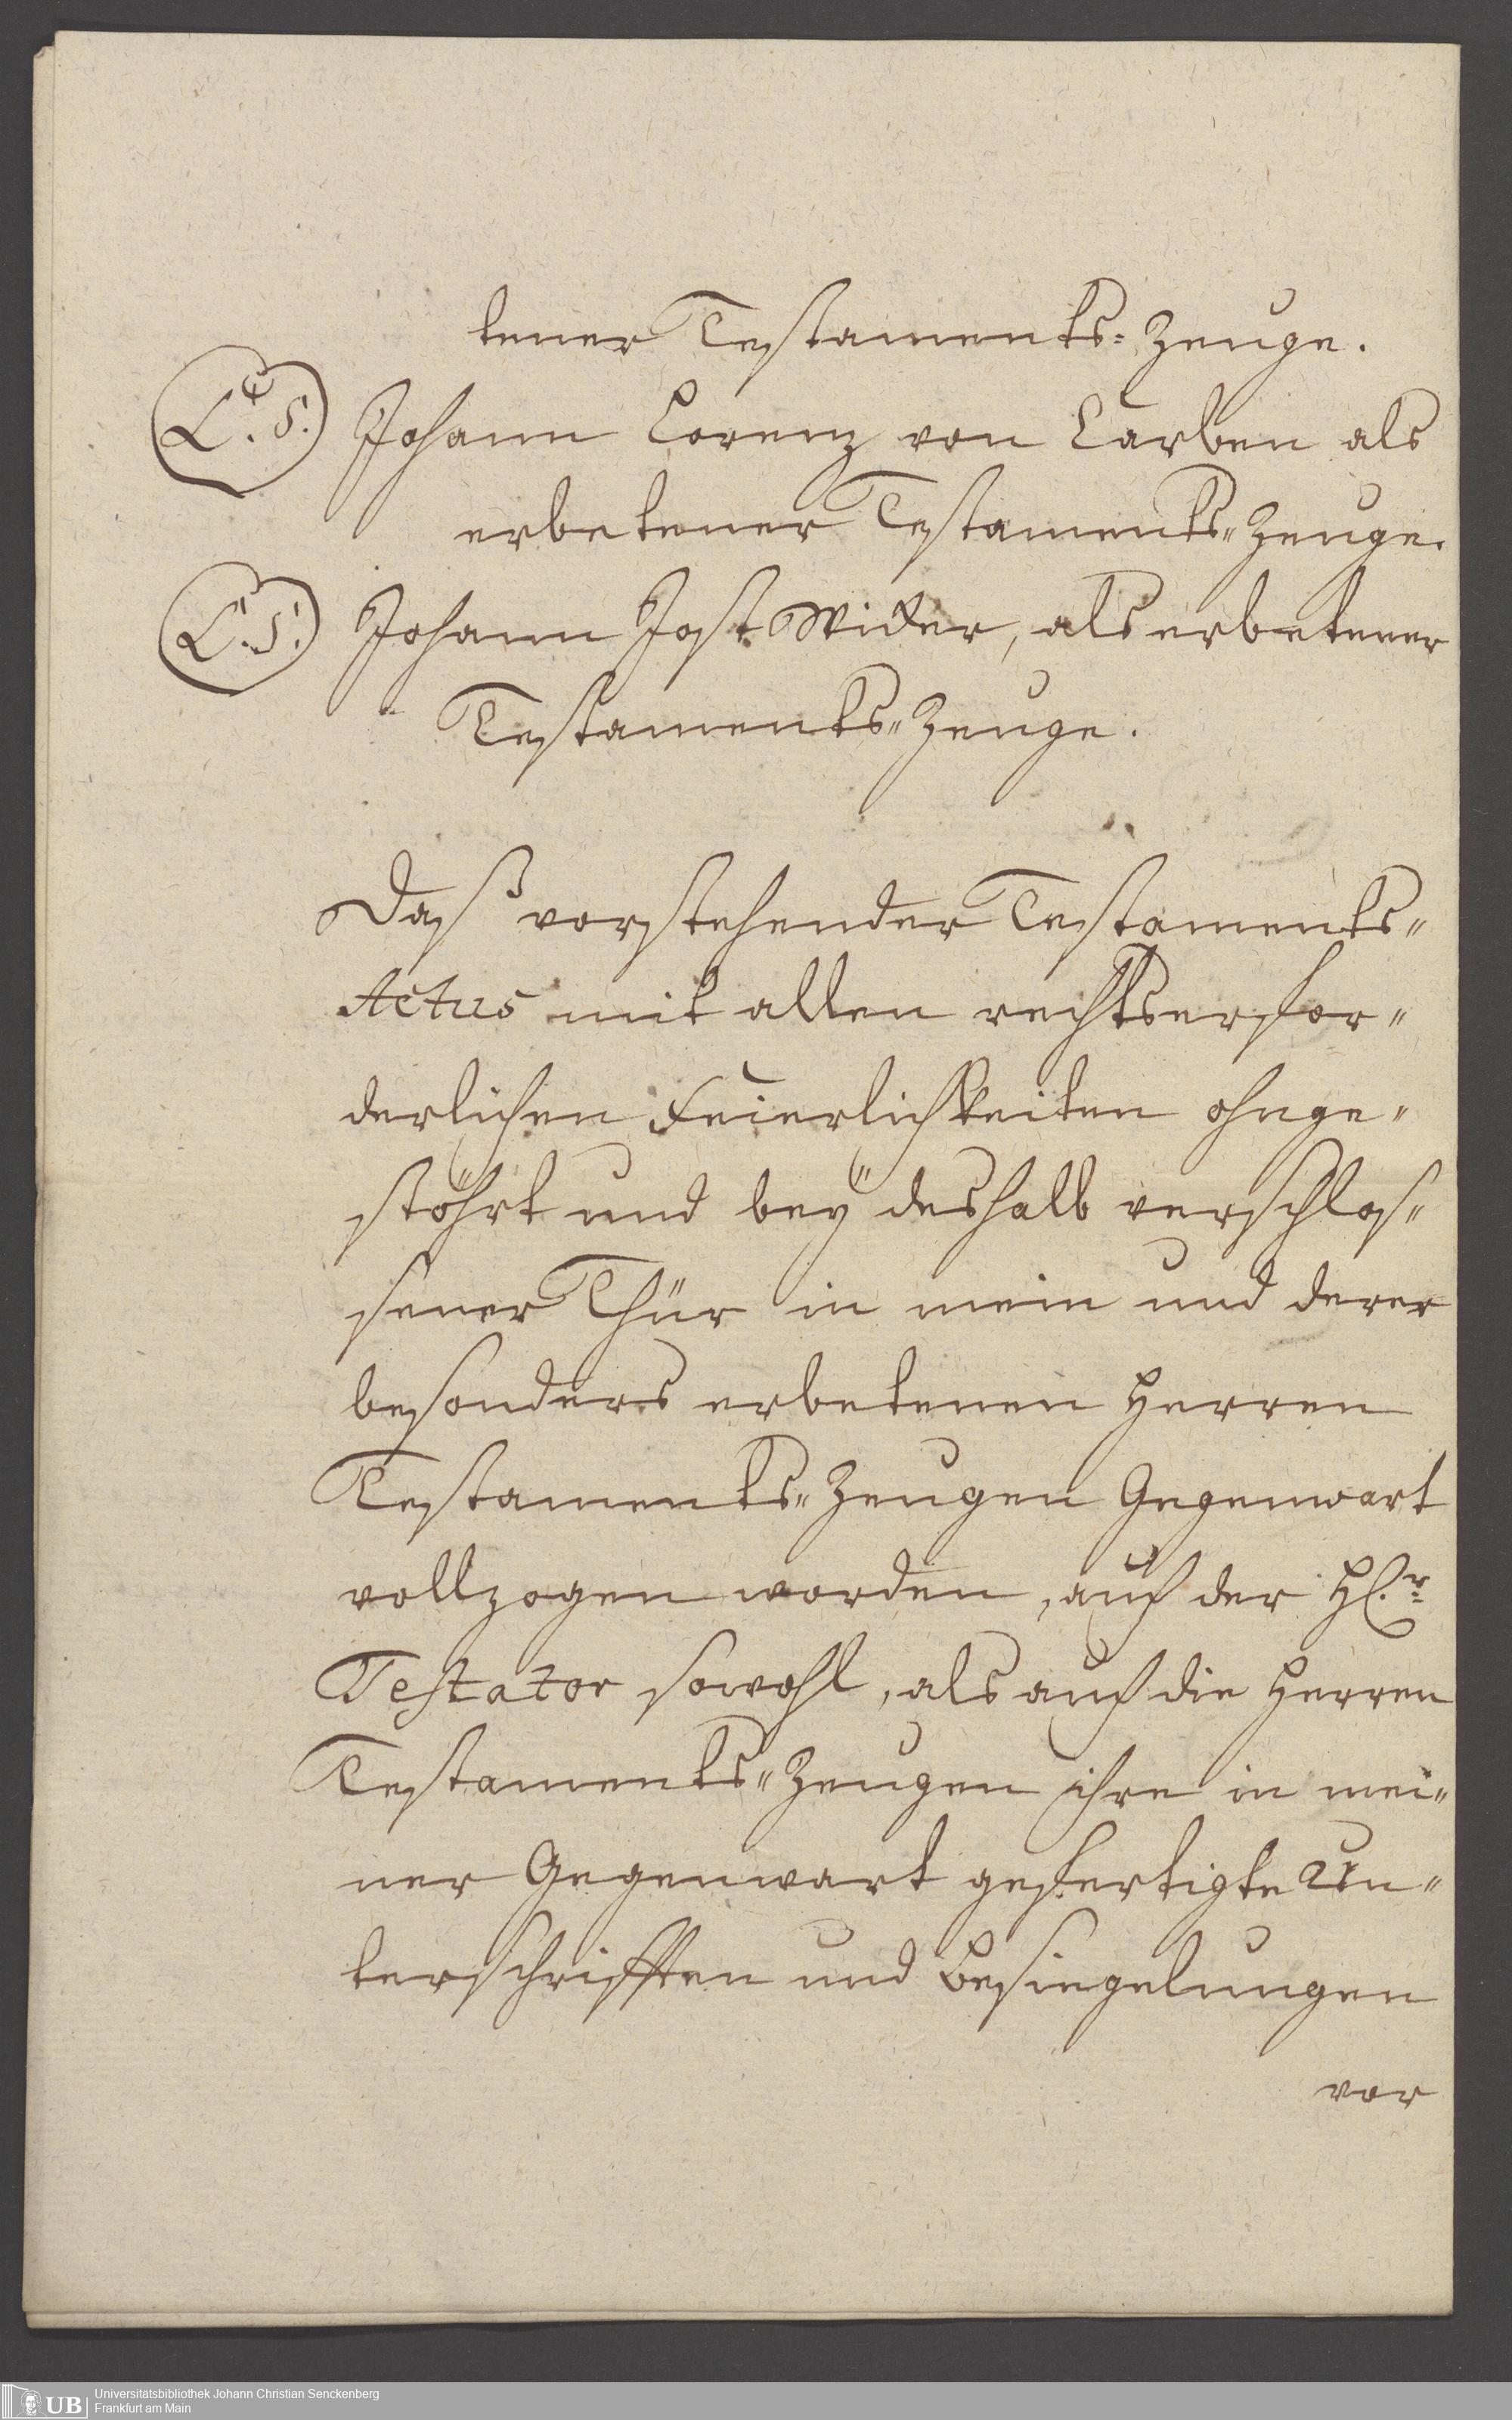 tener Testaments-Zeuge.
L. S. Johann Lorenz von Carben als
erbetener Testaments-Zeuge.
L. S. Johann Jost Wider, als erbetener
Testaments-Zeuge.
Daß vorstehender Testaments-
Actus mit allen rechtserfor-
derlichen Feierlichkeiten ohnge-
stöhrt und bey deshalb verschlos-
sener Thür in mein und derer
besonders erbetenen Herren
Testaments-Zeugen Gegenwart
vollzogen worden, auch der H.r
Testator sowohl, als auch die Herren
Testaments-Zeugen ihre in mei-
ner Gegenwart gefertigte Un-
terschrifften und Besiegelungen
vor
UB Universitätsbibliothek Johann Christian Senckenberg
Frankfurt am Main